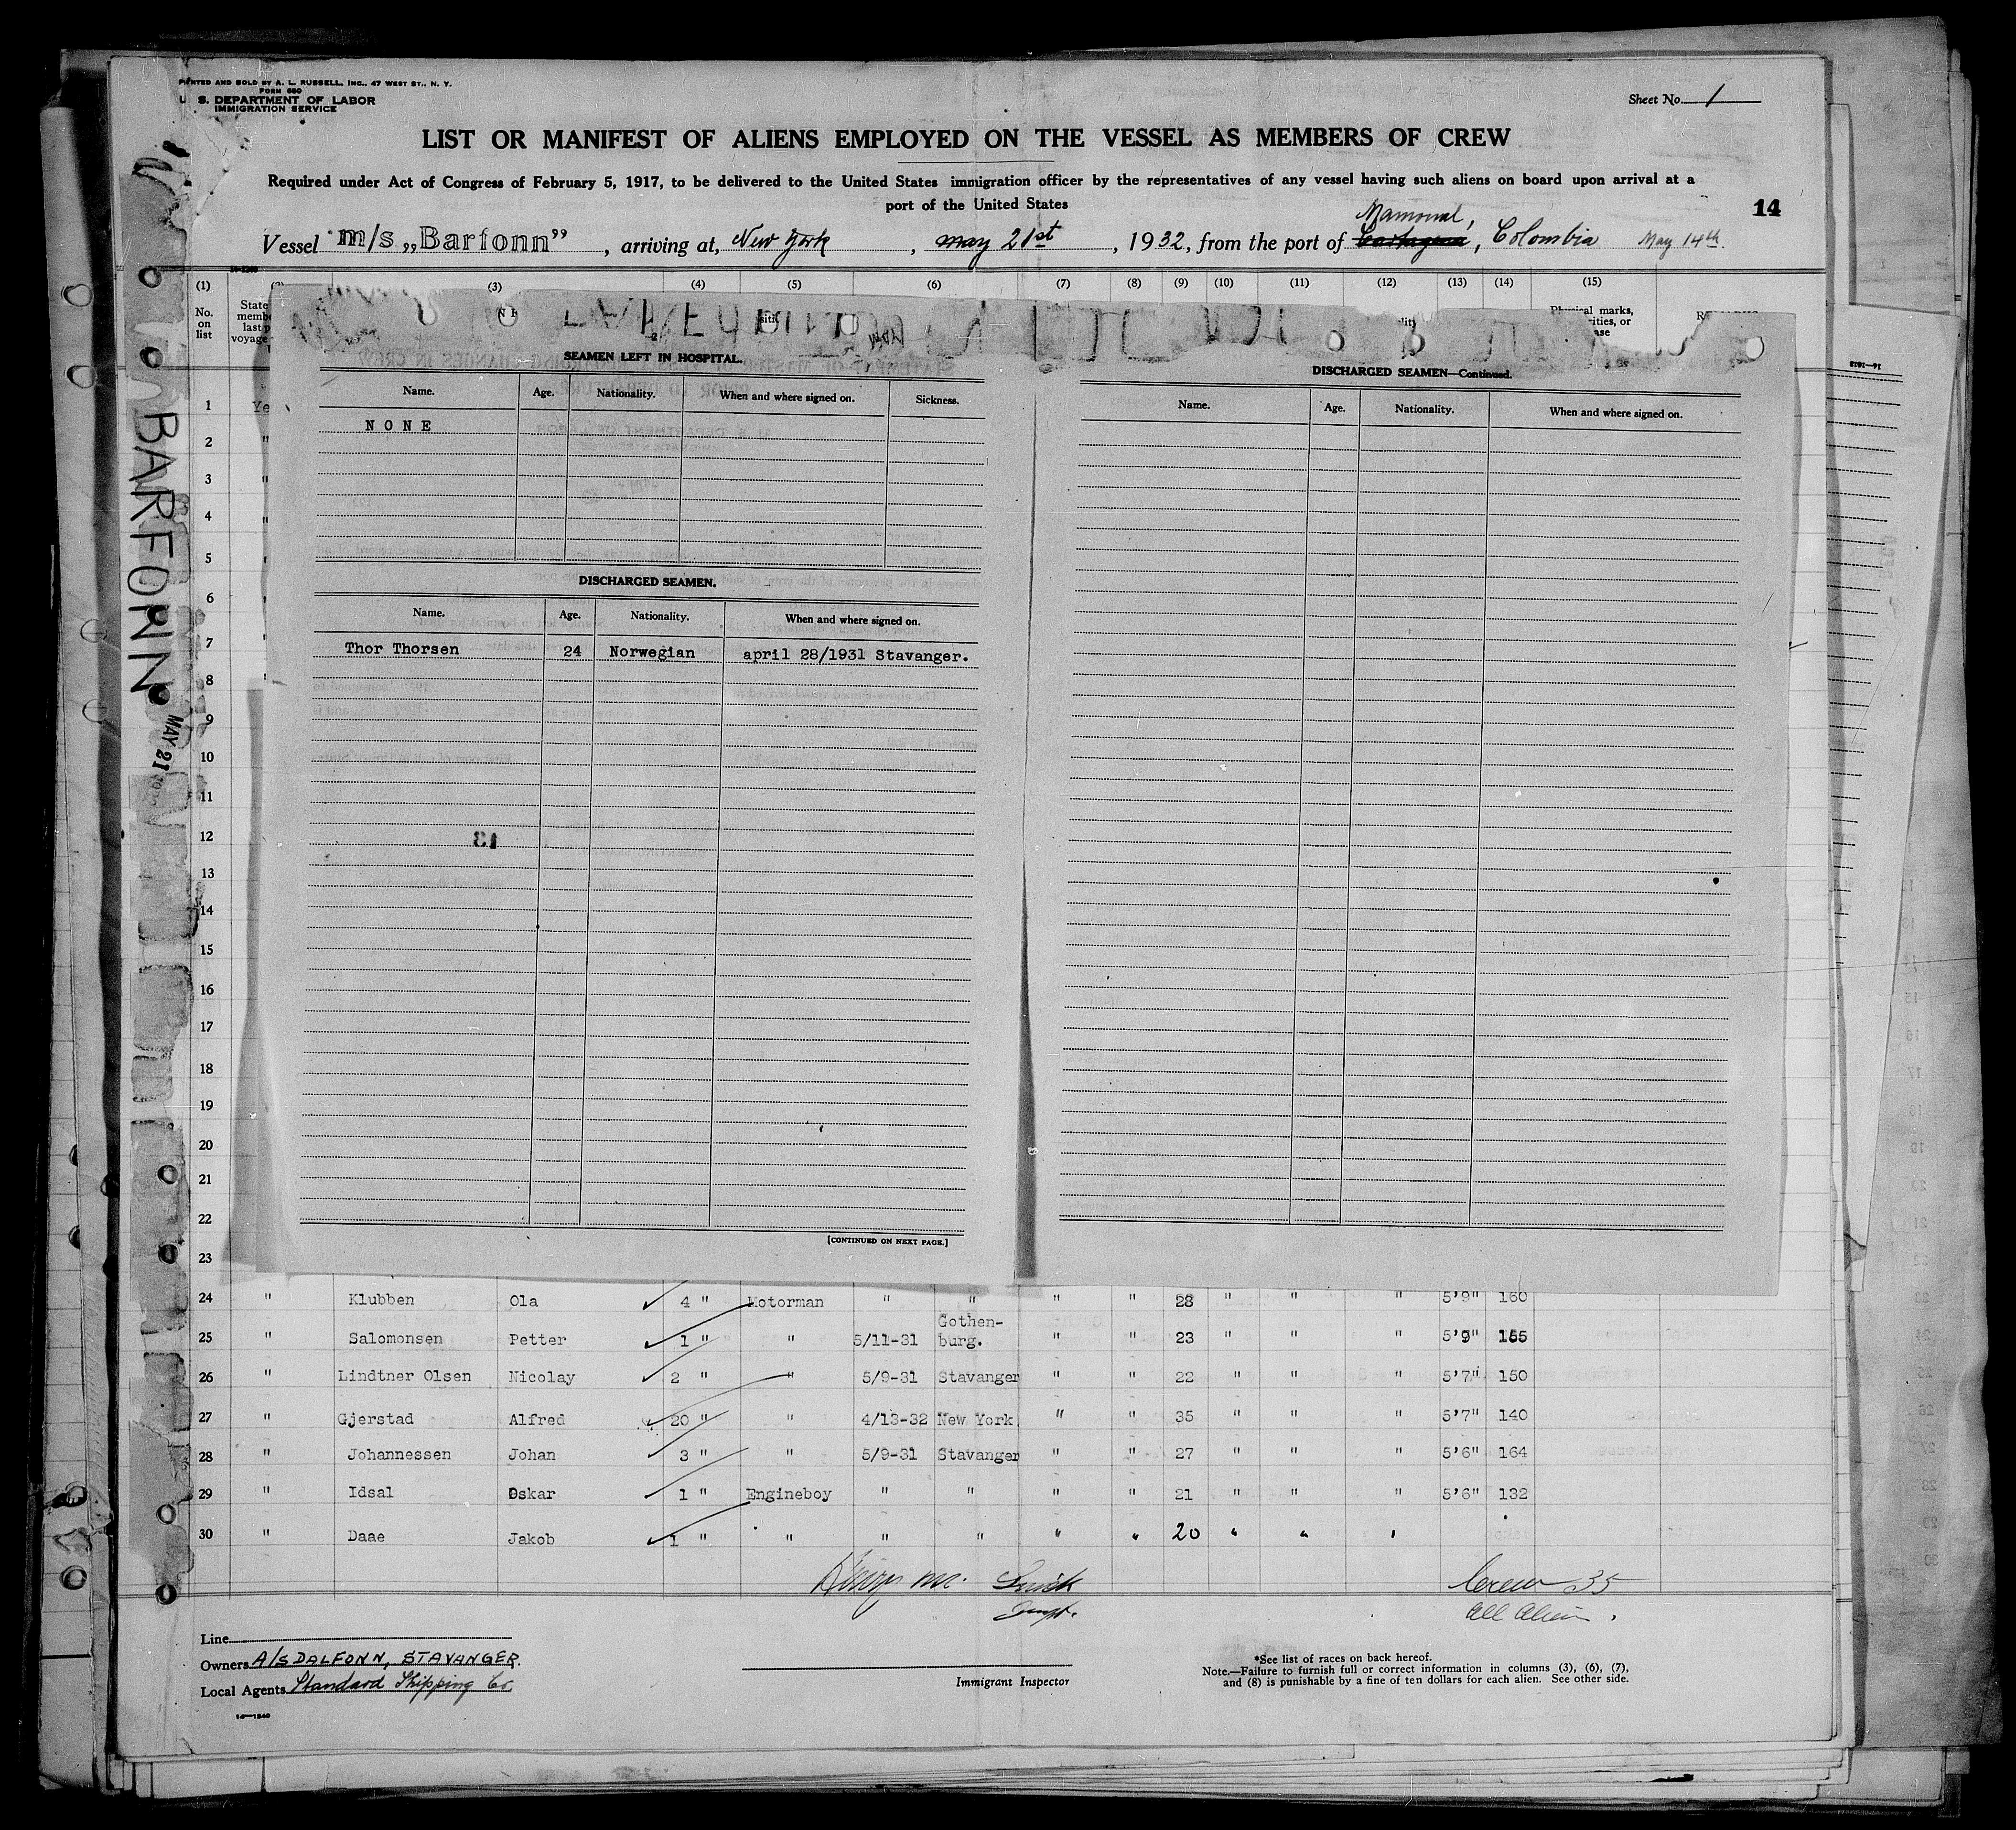 PRINTED AND SOLD BY A. L. RUSSELL, INC., 47 WEST ST., N. Y.
FORM 680
U. S. DEPARTMENT OF LABOR
IMMIGRATION SERVICE
Sheet No. 1
LIST OR MANIFEST OF ALIENS EMPLOYED ON THE VESSEL AS MEMBERS OF CREW
Required under Act of Congress of February 5, 1917, to be delivered to the United States immigration officer by the representatives of any vessel having such aliens on board upon arrival at a
port of the United States
14
Mamonal,
Vessel m/s „Barfonn”, arriving at, New York, May 21st, 1932, from the port of Cartagena, Colombia May 14th.
(1) (3) (4) (5) (6) (7) (8) (9) (10) (11) (12) (13) (14) (15)
No. on list
State
last
voyage
marks,
BARFONN MAY 21
SEAMEN LEFT IN HOSPITAL.
Name. Age. Nationality. When and where signed on. Sickness.
NONE
DISCHARGED SEAMEN.
Name. Age. Nationality. When and where signed on.
Thor Thorsen 24 Norwegian april 28/1931 Stavanger.
13
[CONTINUED ON NEXT PAGE.]
DISCHARGED SEAMEN—Continued.
Name. Age. Nationality. When and where signed on.
1 Ye
2 "
3 "
4 "
5 "
6
7
8
9
10
11
12
13
14
15
16
17
18
19
20
21
22
23
24 " Klubben Ola 4 " Motorman " " " " 28 " " " 5'9" 160
25 " Salomonsen Petter 1 " " 5/11-31 Gothen-burg. " " 23 " " " 5'9" 155
26 " Lindtner Olsen Nicolay 2 " " 5/9-31 Stavanger " " 22 " " " 5'7" 150
27 " Gjerstad Alfred 20 " " 4/13-32 New York " " 35 " " " 5'7" 140
28 " Johannessen Johan 3 " " 5/9-31 Stavanger " " 27 " " " 5'6" 164
29 " Idsal Oskar 1 " Engineboy " " " " 21 " " " 5'6" 132
30 " Daae Jakob 1 " " " " " " 20 " " "
Crew 35
All Alien.
Line
Owners A/S DALFONN, STAVANGER.
Local Agents Standard Shipping Co.
Immigrant Inspector
*See list of races on back hereof.
Note.—Failure to furnish full or correct information in columns (3), (6), (7),
and (8) is punishable by a fine of ten dollars for each alien. See other side.